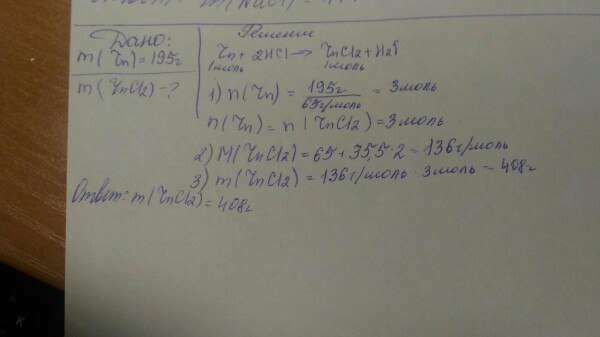 Дано:
m(Zn)=195г
m(ZnCl2)-?
Решение
Zn+2HCl→ZnCl2+H2↑
1моль 1моль
1) n(Zn) = 195г/65г/моль = 3моль
n(Zn)=n(ZnCl2)=3моль
2) M(ZnCl2)=65+35,5·2=136г/моль
3) m(ZnCl2)=136г/моль·3моль=408г
Ответ: m(ZnCl2)=408г